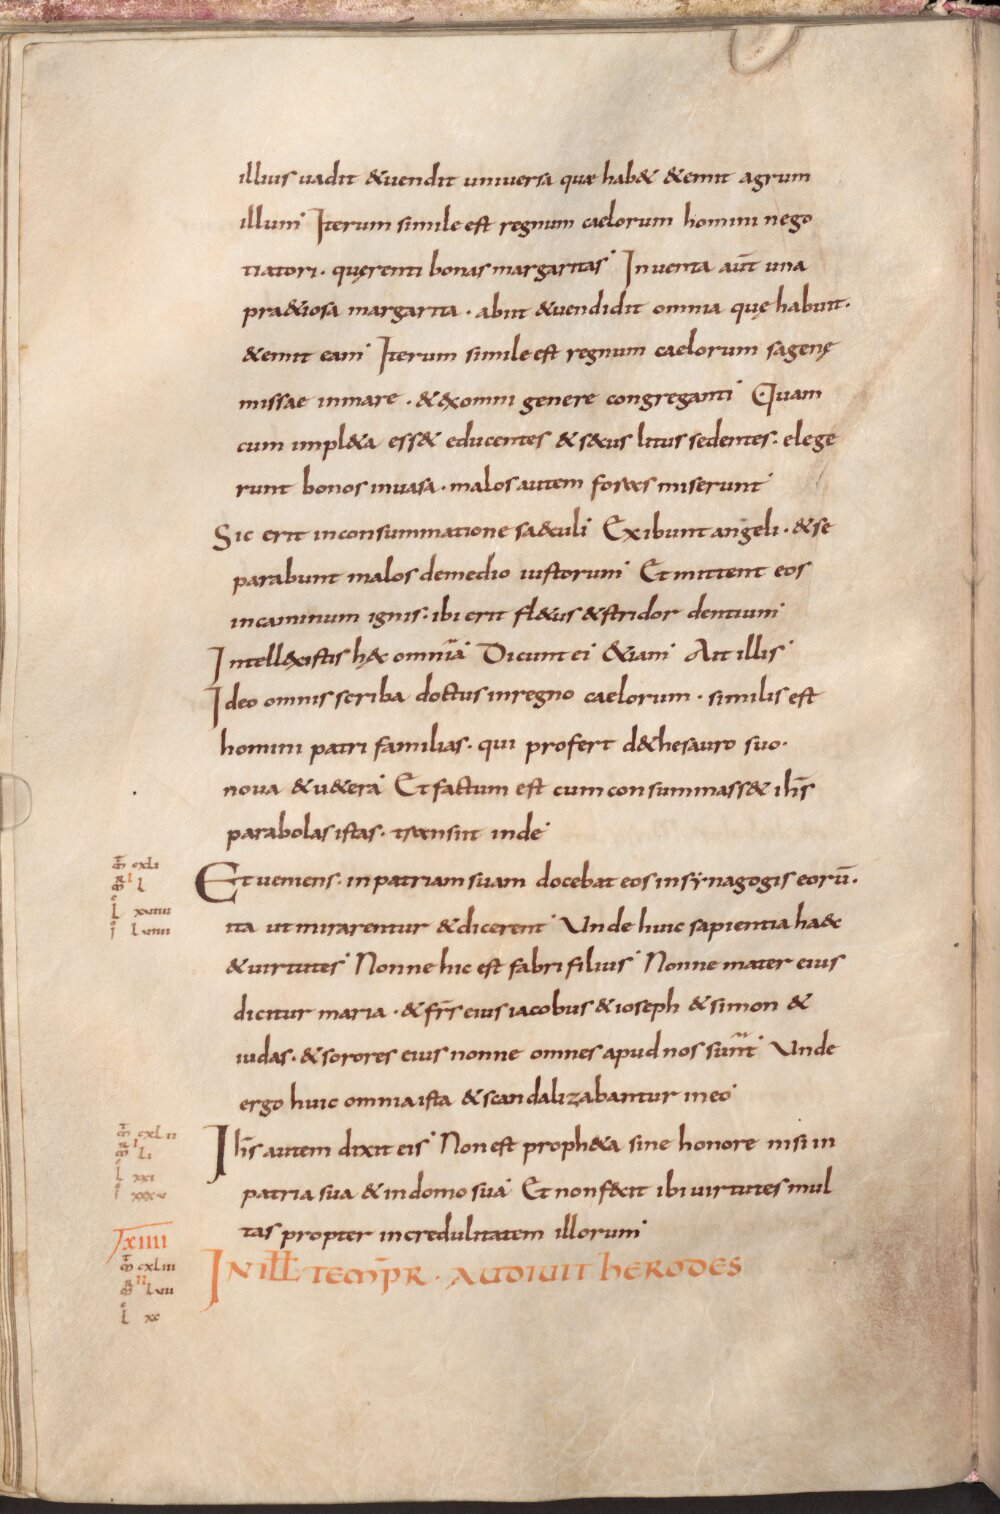 illius uadit &uendit uniuersa quæ hab& &emit agrum
illum Iterum simile est regnum caelorum homini nego
tiatori · quęrenti bonas margaritas Inuenta aūt una
pra&iosa margarita · abiit &uendidit omnia quę habuit ·
&emit eam Iterum simile est regnum caelorum sagenę
missae inmare · &exomni genere congreganti Quam
cum impl&a ess& educentes &secus litus sedentes · elege
runt bonos inuasa · malos autem foras miserunt
Sic erit inconsummatione saeculi Exibunt angeli · &se
parabunt malos demedio iustorum Et mittent eos
incaminum ignis · ibi erit fl&us &stridor dentium
Intellexistis hęc omnia Dicunt ei &iam Ait illis
Ideo omnis scriba doctus inregno caelorum · similis est
homini patri familias · qui profert d&hesauro suo ·
noua &u&era Et factum est cum consummass& ihs̄
parabolas istas · transiit inde
T̄M CXLI
MR I L
L XXVIIII
I LVIIII
Et ueniens · inpatriam suam docebat eos insynagogis eorū ·
ita ut mirarentur &dicerent Unde huic sapientia haec
&uirtutes Nonne hic est fabri filius Nonne mater eius
dicitur maria · &frs̄ eius iacobus &ioseph &simon &
iudas · &sorores eius nonne omnes apud nos sunt Unde
ergo huic omnia ista &scandalizabantur in eo
M CXLII
MR I LI
L XXI
I XXXV
Ihs̄ autem dixit eis Non est proph&a sine honore nisi in
patria sua &indomo sua Et non fecit ibi uirtutes mul
tas propter incredulitatem illorum
XIIII
M CXLIII
MR II LVII
L XC
IN ILL TEMPR · AUDIUIT hERODES